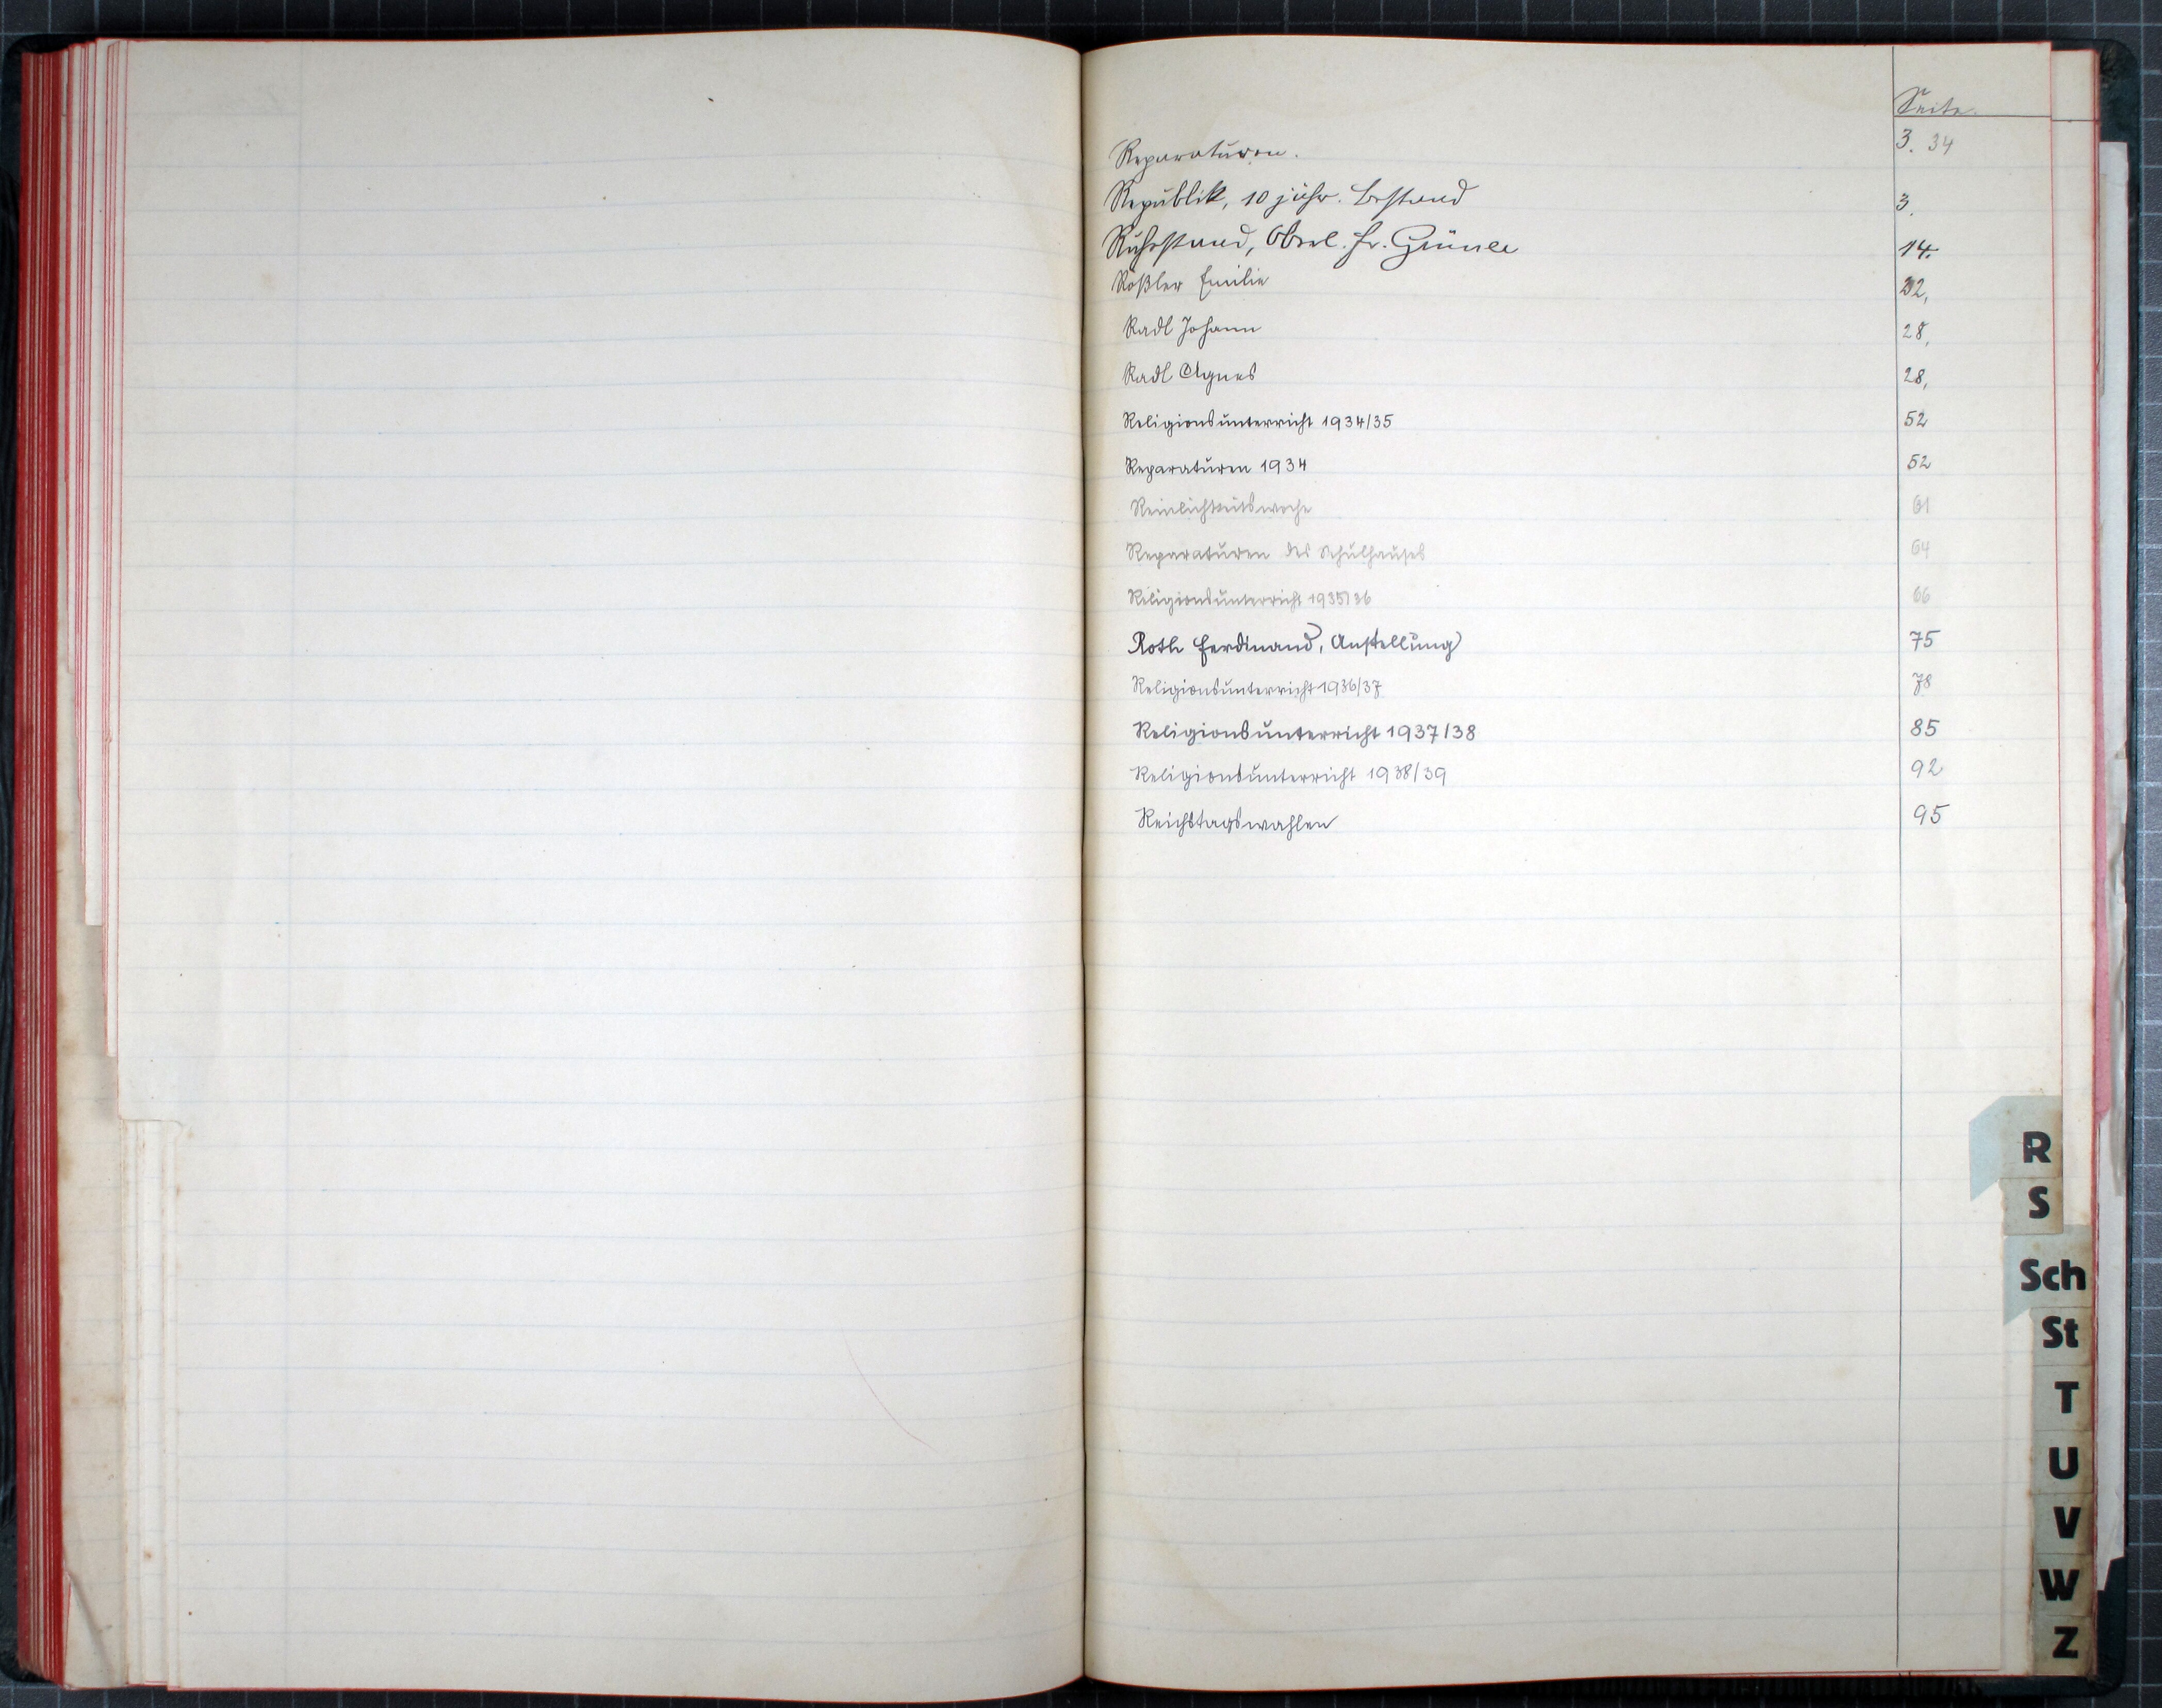 Seite.
Reparaturen. 3. 34
Republik, 10 jähr. Bestand 3.
Ruhestand, Oberl. Fr. 14.
Rößler Emilie 32,
Radl Johann 28,
Radl Agnes 28,
Religionsunterricht 1934/35 52
Reparaturen 1934 52
Reinlichkeitswoche 61
Reparaturen des Schulhauses 64
Religionsunterricht 1935/36 66
Roth Ferdinand, Anstellung 75
Religionsunterricht 1936/37 78
Religionsunterricht 1937/38 85
Religionsunterricht 1938/39 92
Reichstagswahlen 95
R
S
Sch
St
T
U
V
W
Z